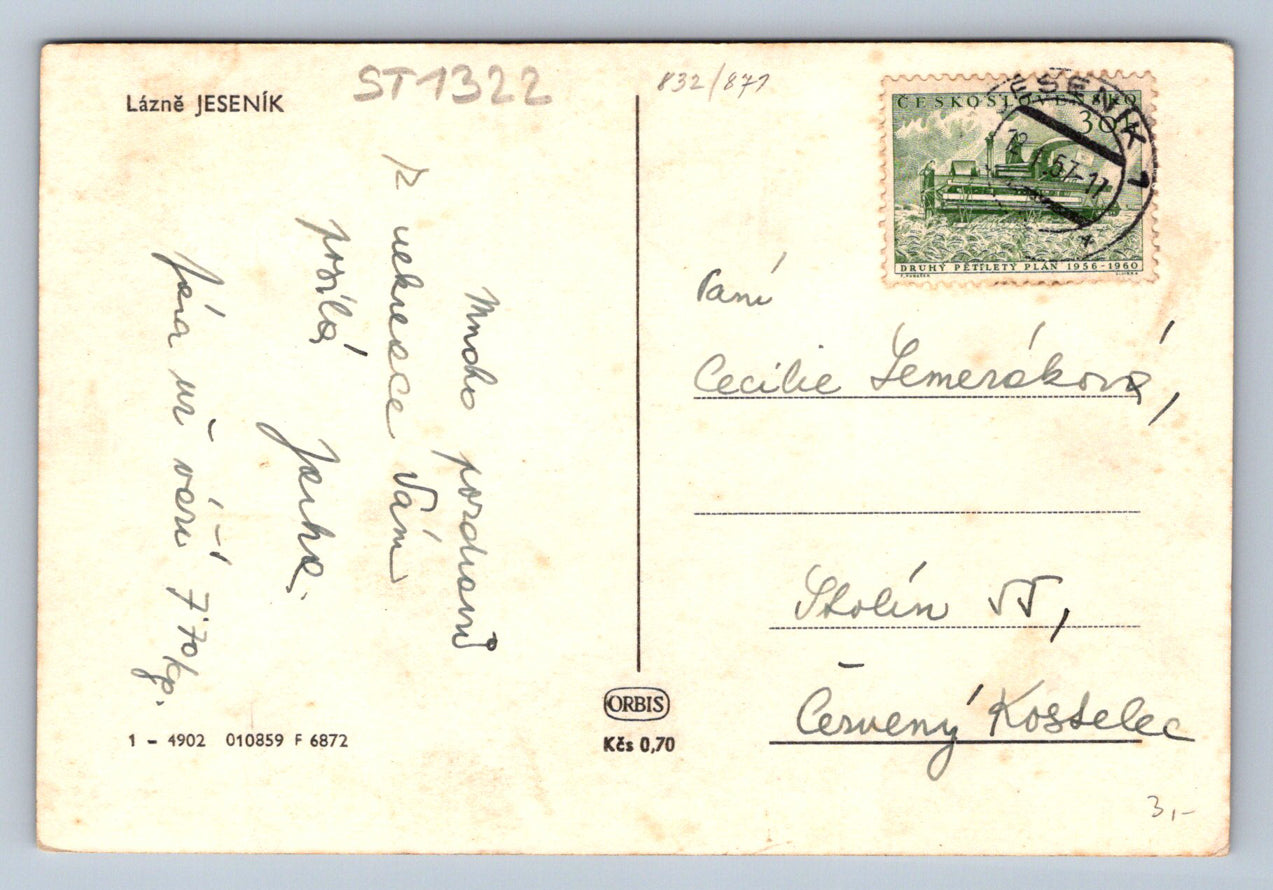 Lázně JESENÍK
ST1322
832/871
ČESKOSLOVENSKO
30h
JESENÍK 1
57-17
DRUHÝ PĚTILETÝ PLÁN 1956-1960
Mnoho pozdravů
z rekreace Vám
posílá
Jarka.
Jára už váží 7'70 kg.
Paní
Cecilie Semeráková,
Stolín
Červený Kostelec
ORBIS
Kčs 0,70
1 - 4902 010859 F 6872
3,-